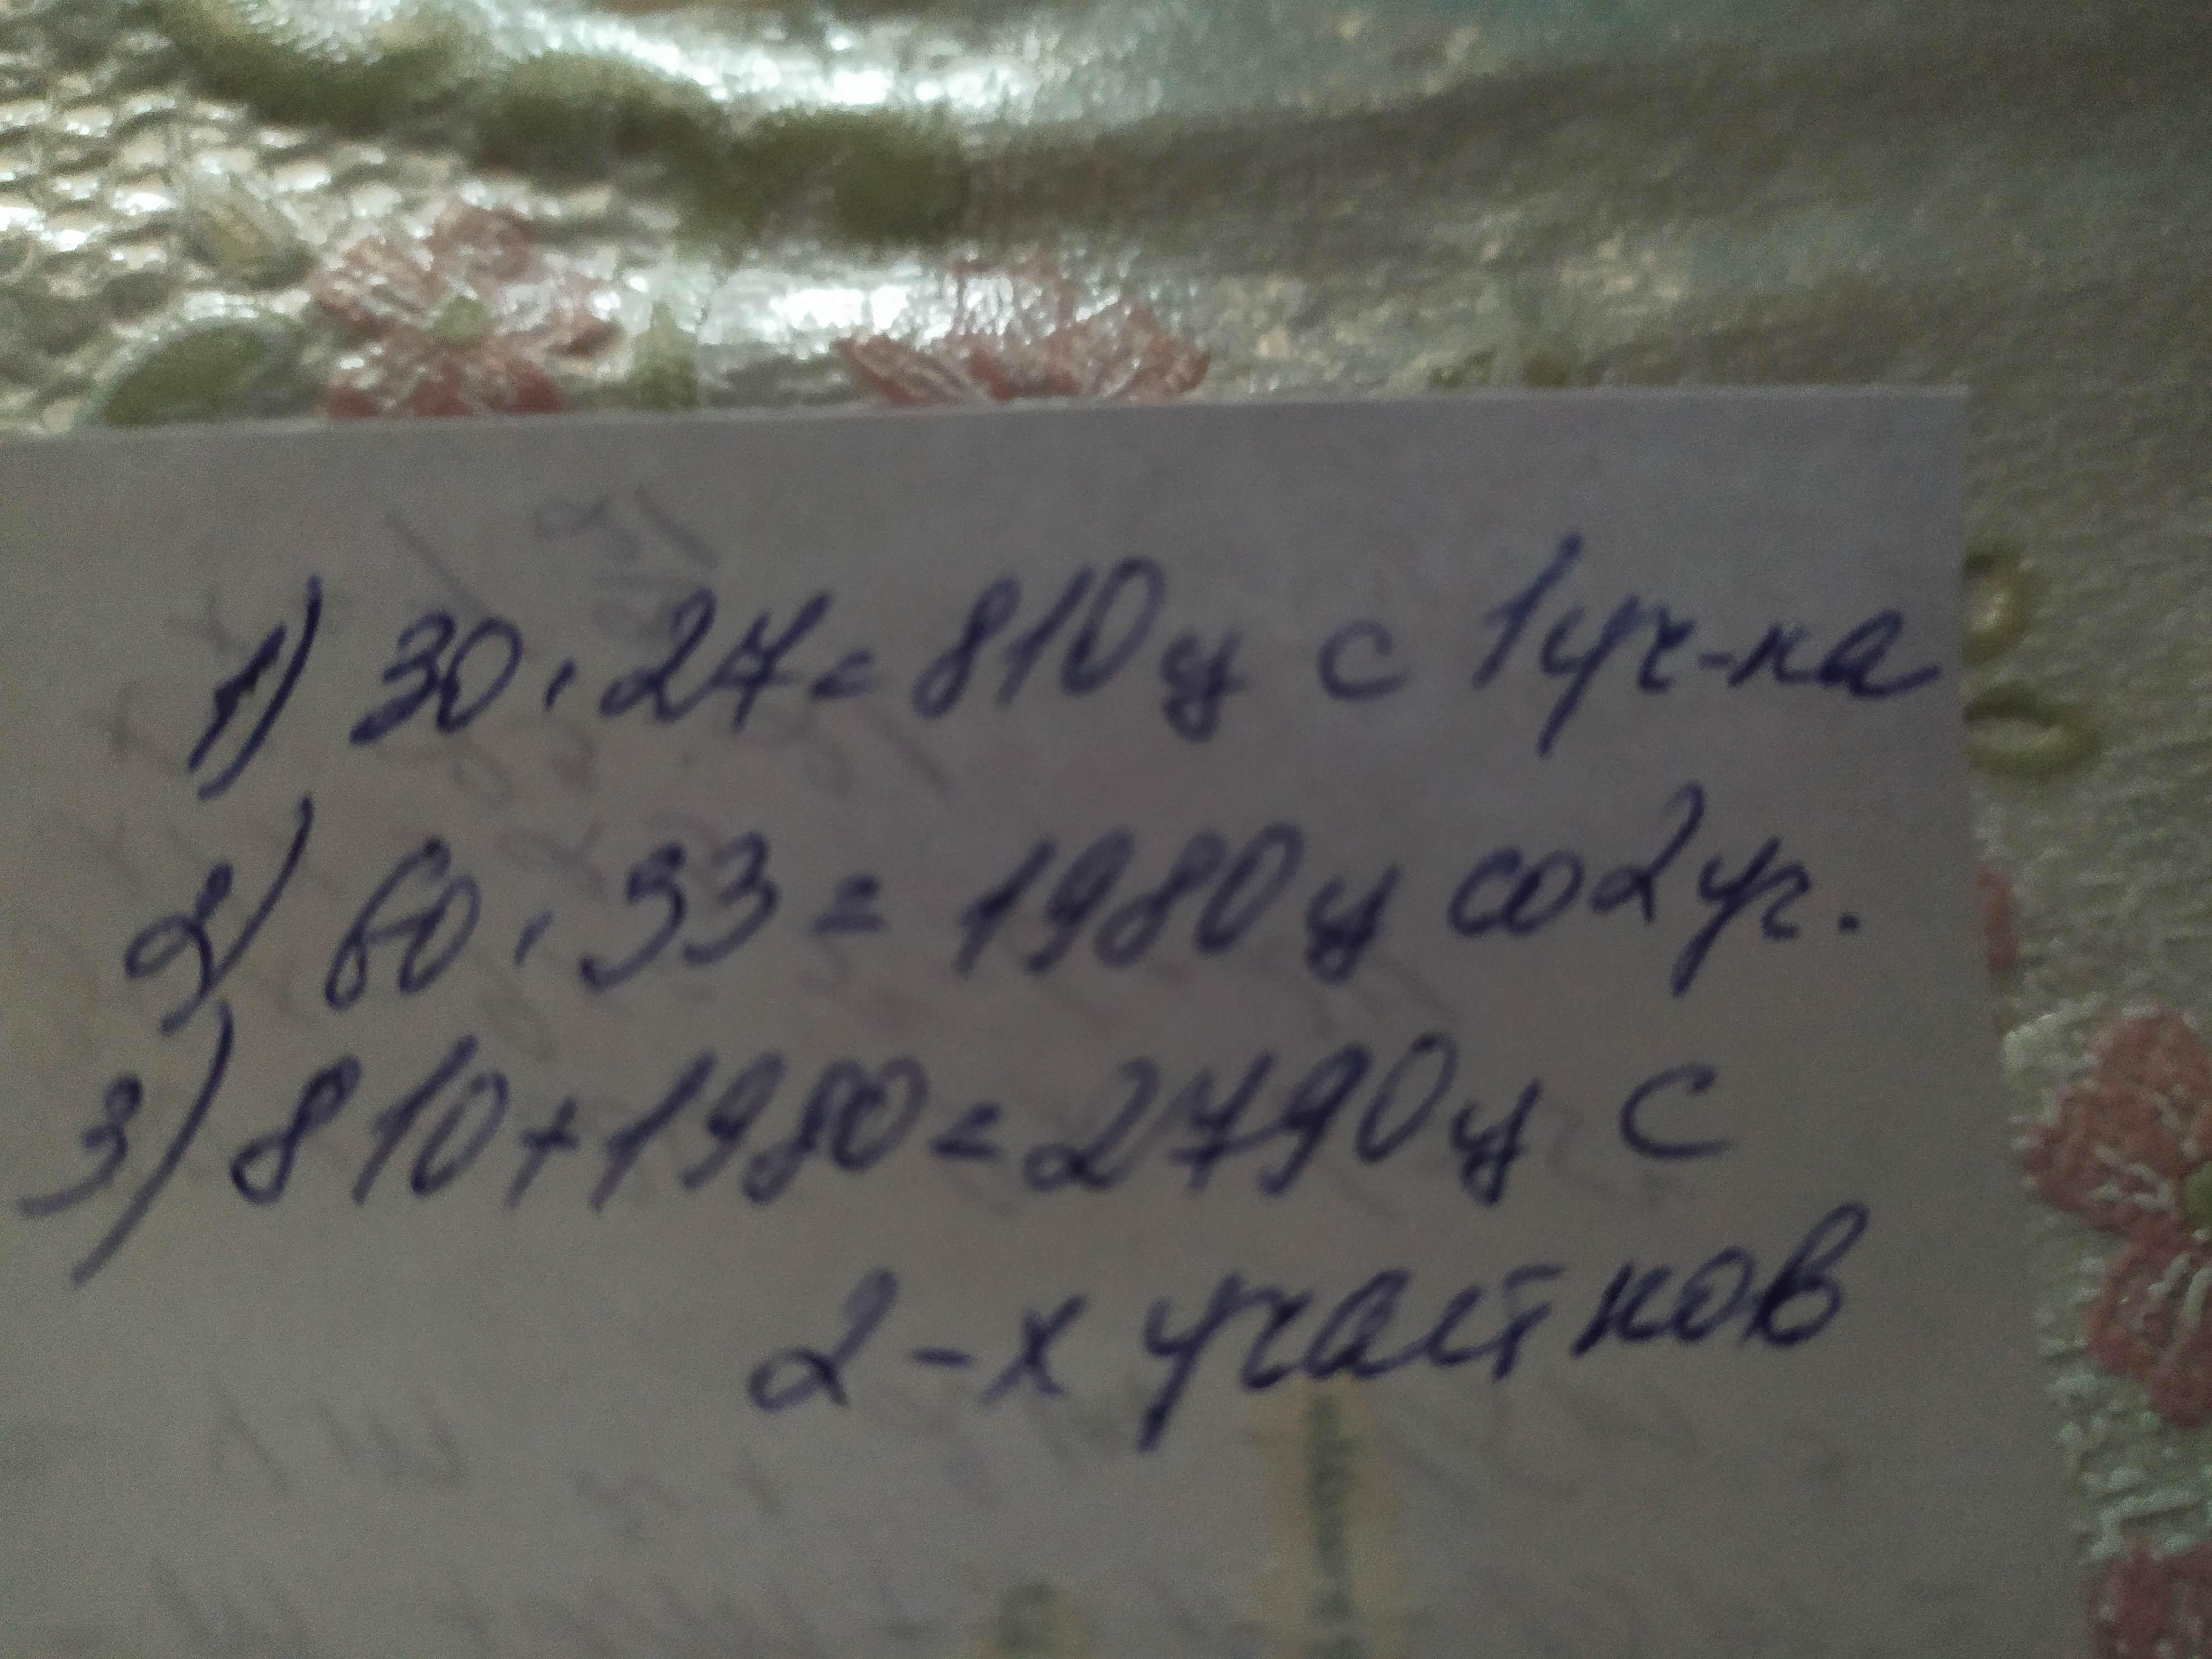 1) 30 · 27 = 810 ц с 1 уч-ка
2) 60 · 33 = 1980 ц со 2 уч.
3) 810 + 1980 = 2790 ц с
2-х участков